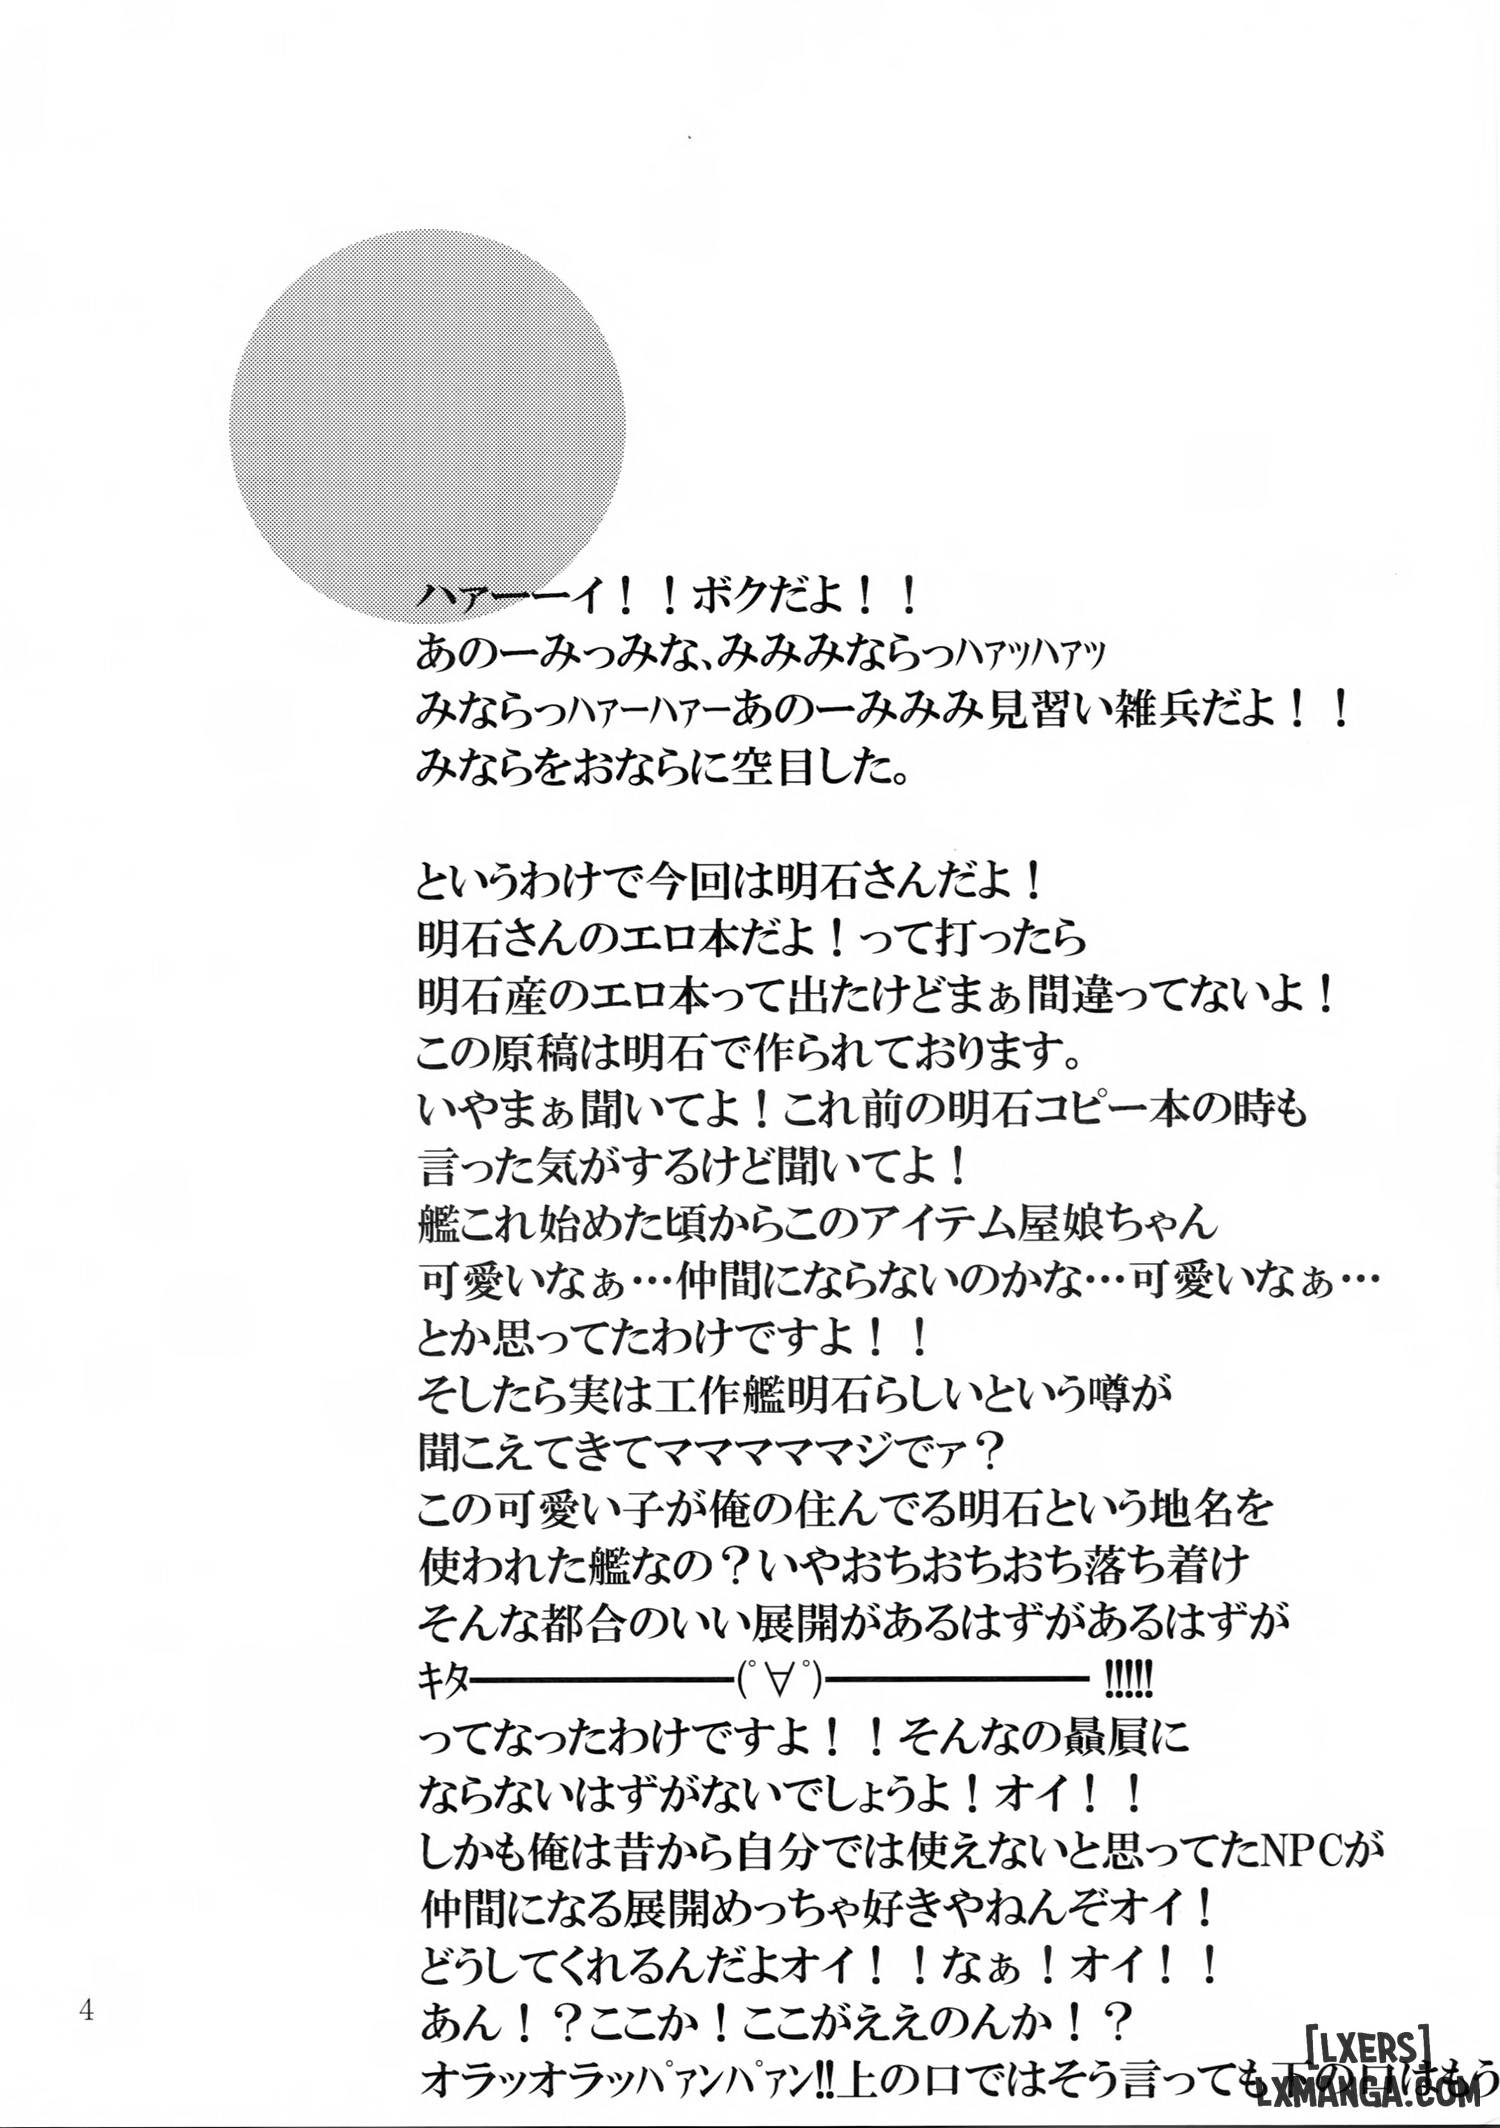 ハァーーイ！！ボクだよ！！
あのーみっみな、みみみならっﾊｧｯﾊｧｯ
みならっﾊｧｰﾊｧｰあのーみみみ見習い雑兵だよ！！
みならをおならに空目した。
というわけで今回は明石さんだよ！
明石さんのエロ本だよ！って打ったら
明石産のエロ本って出たけどまぁ間違ってないよ！
この原稿は明石で作られております。
いやまぁ聞いてよ！これ前の明石コピー本の時も
言った気がするけど聞いてよ！
艦これ始めた頃からこのアイテム屋娘ちゃん
可愛いなぁ…仲間にならないのかな…可愛いなぁ…
とか思ってたわけですよ！！
そしたら実は工作艦明石らしいという噂が
聞こえてきてマママママジでァ？
この可愛い子が俺の住んでる明石という地名を
使われた艦なの？いやおちおちおち落ち着け
そんな都合のいい展開があるはずがあるはずが
ｷﾀ━━━━━━(ﾟ∀ﾟ)━━━━━━ !!!!!
ってなったわけですよ！！そんなの贔屓に
ならないはずがないでしょうよ！オイ！！
しかも俺は昔から自分では使えないと思ってたNPCが
仲間になる展開めっちゃ好きやねんぞオイ！
どうしてくれるんだよオイ！！なぁ！オイ！！
あん！？ここか！ここがええのんか！？
オラッオラッﾊﾟｧﾝﾊﾟｧﾝ!!上の口ではそう言っても下の口はもう
4
[LXERS]
LXMANGA.COM